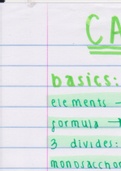 CA
basics:
elements →
formula →
3 divides:
monosacchar